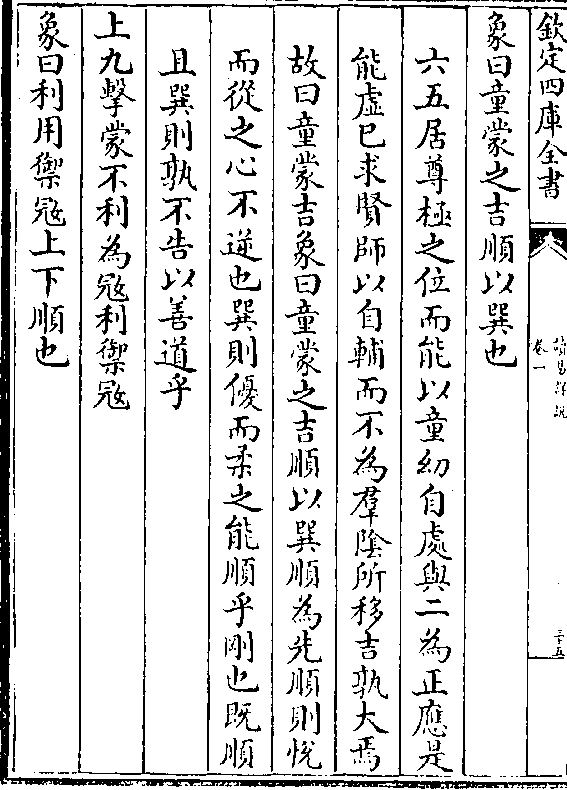 欽定四庫全書
讀易詳說
卷一
三十五
象曰童蒙之吉順以巽也
六五居尊極之位而能以童幼自處與二為正應是
能虛已求賢師以自輔而不為羣陰所移吉孰大焉
故曰童蒙吉象曰童蒙之吉順以巽順為先順則悅
而從之心不逆也巽則優而柔之能順乎剛也既順
且巽則孰不告以善道乎
上九擊蒙不利為冦利禦冦
象曰利用禦冦上下順也